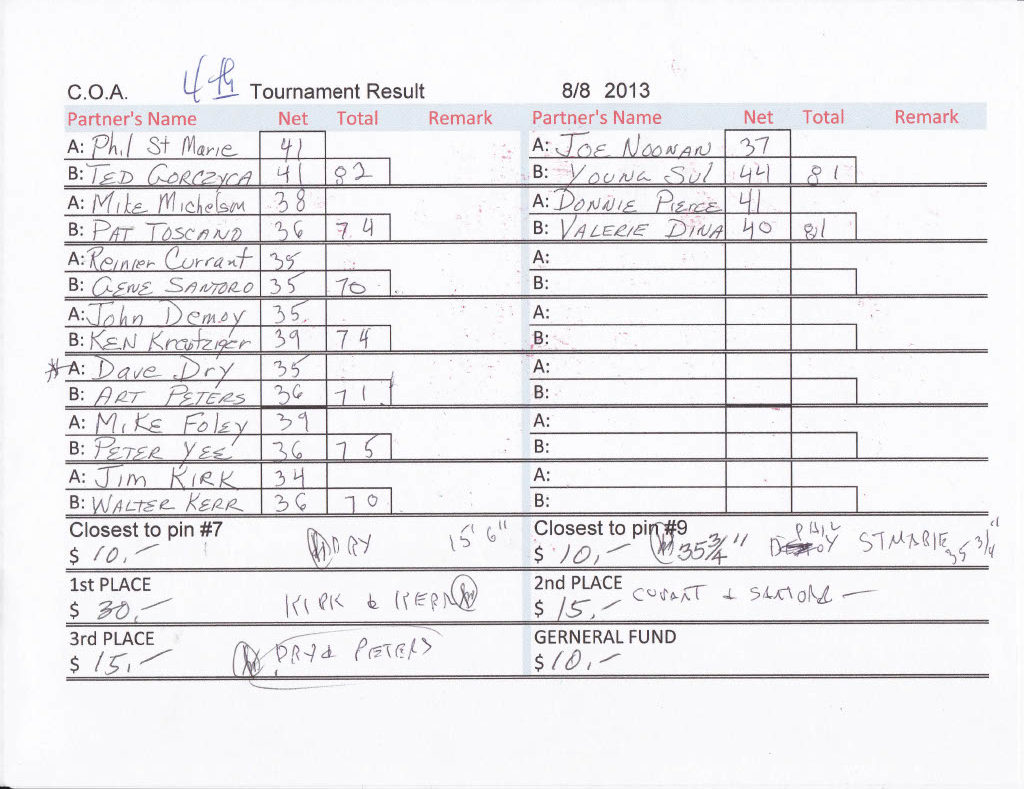 C.O.A. 4th Tournament Result 8/8 2013
Partner's Name Net Total Remark Partner's Name Net Total Remark
A: Phil St Marie 41 A: JOE NOONAN 37
B: TED GORCZYCA 41 82 B: YOUNG SUL 44 81
A: Mike Michelson 38 A: DONNIE PIERCE 41
B: PAT TOSCANO 36 74 B: VALERIE DINA 40 81
A: Reinier Currant 35 A:
B: GENE SANTORO 35 70 B:
A: John Demoy 35 A:
B: KEN Kreutziger 39 74 B:
* A: Dave Dry 35 A:
B: ART PETERS 36 71 B:
A: MIKE FOLEY 39 A:
B: PETER YEE 36 75 B:
A: JIM KIRK 34 A:
B: WALTER KERR 36 70 B:
Closest to pin #7 Closest to pin #9
$ 10,- DRY 15' 6" $ 10,- 35 3/4" PHIL STMARIE 35 3/4"
1st PLACE 2nd PLACE
$ 30,- KIRK & KERR $ 15,- CURANT & SANTORO
3rd PLACE GERNERAL FUND
$ 15,- DRY & PETERS $ 10,-